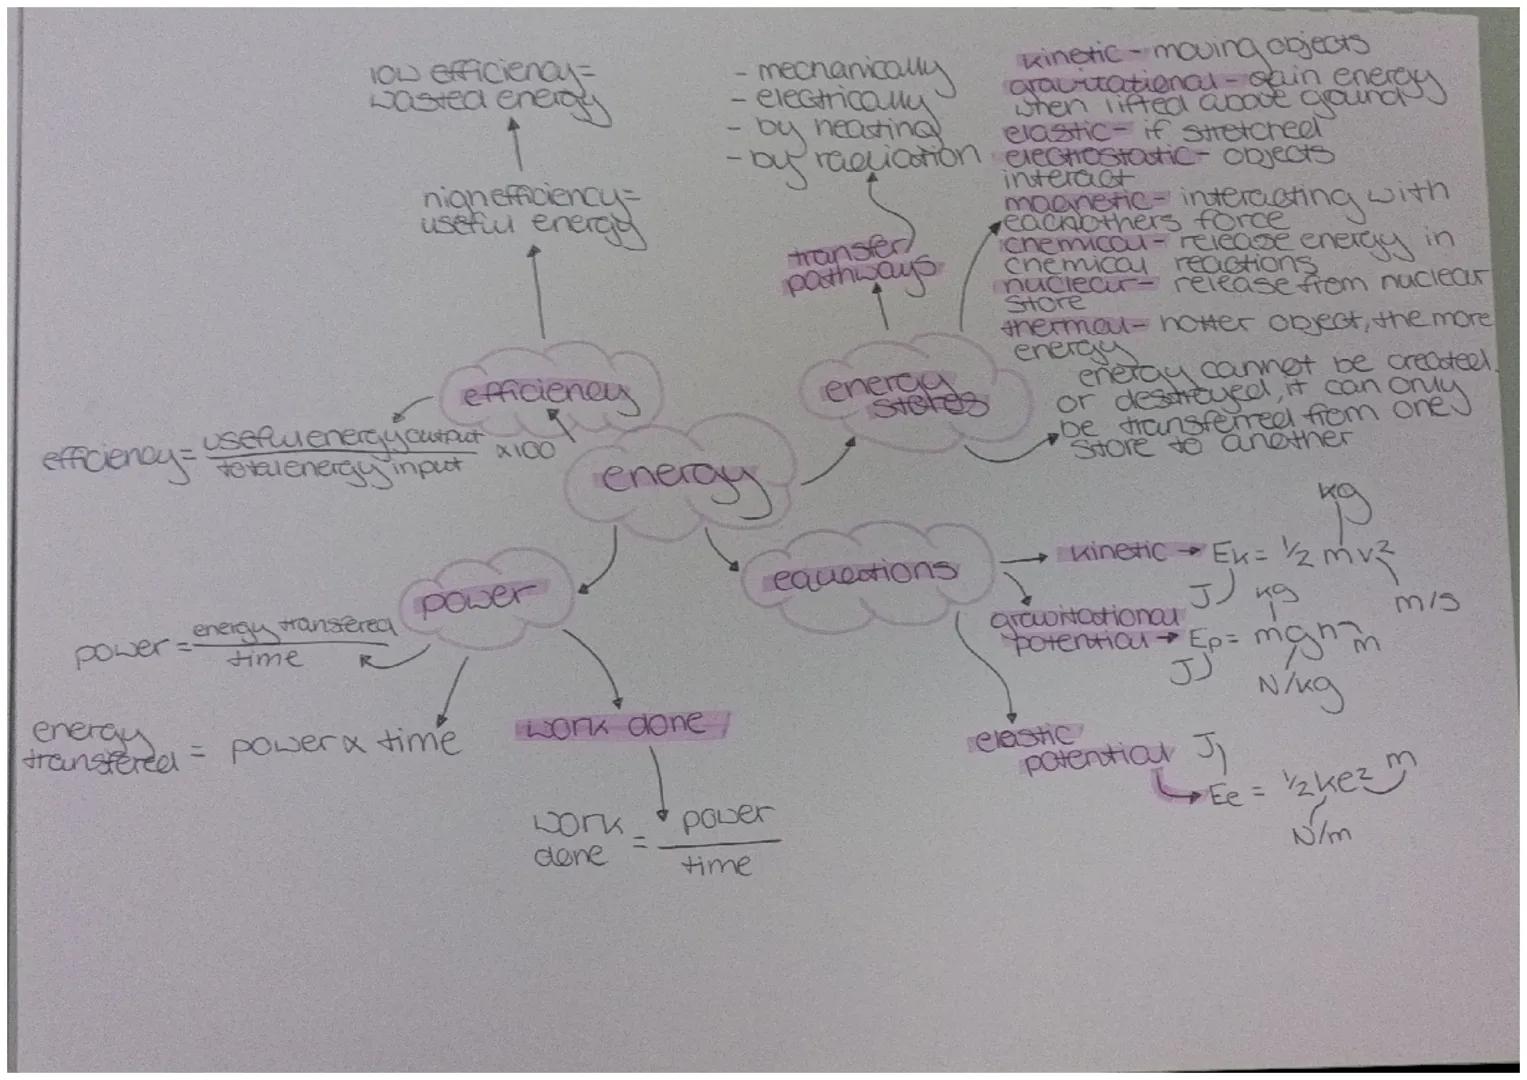 low efficiency=
wasted energy
high efficiency=
useful energy
efficiency
efficiency= useful energy output
total energy input
x100
- mechanically
- electrically
- by heating
- by radiation
transfer
pathways
energy
stores
kinetic - moving objects
gravitational - gain energy
when lifted above ground
elastic - if stretched
electrostatic - objects
interact
magnetic - interacting with
eachothers force
chemical - release energy in
chemical reactions
nuclear - release from nuclear
store
thermal - hotter object, the more
energy
energy cannot be created
or destroyed, it can only
be transferred from one
store to another
energy
power
power = energy transfered
time
energy
transfered = power x time
work done
work
done = power
time
equations
kg
kinetic → Ek = ½ mv²
J
m/s
kg
gravitational
potential → Ep = mgh
m
J
N/kg
elastic
potential
J
Ee = ½ke²
m
N/m